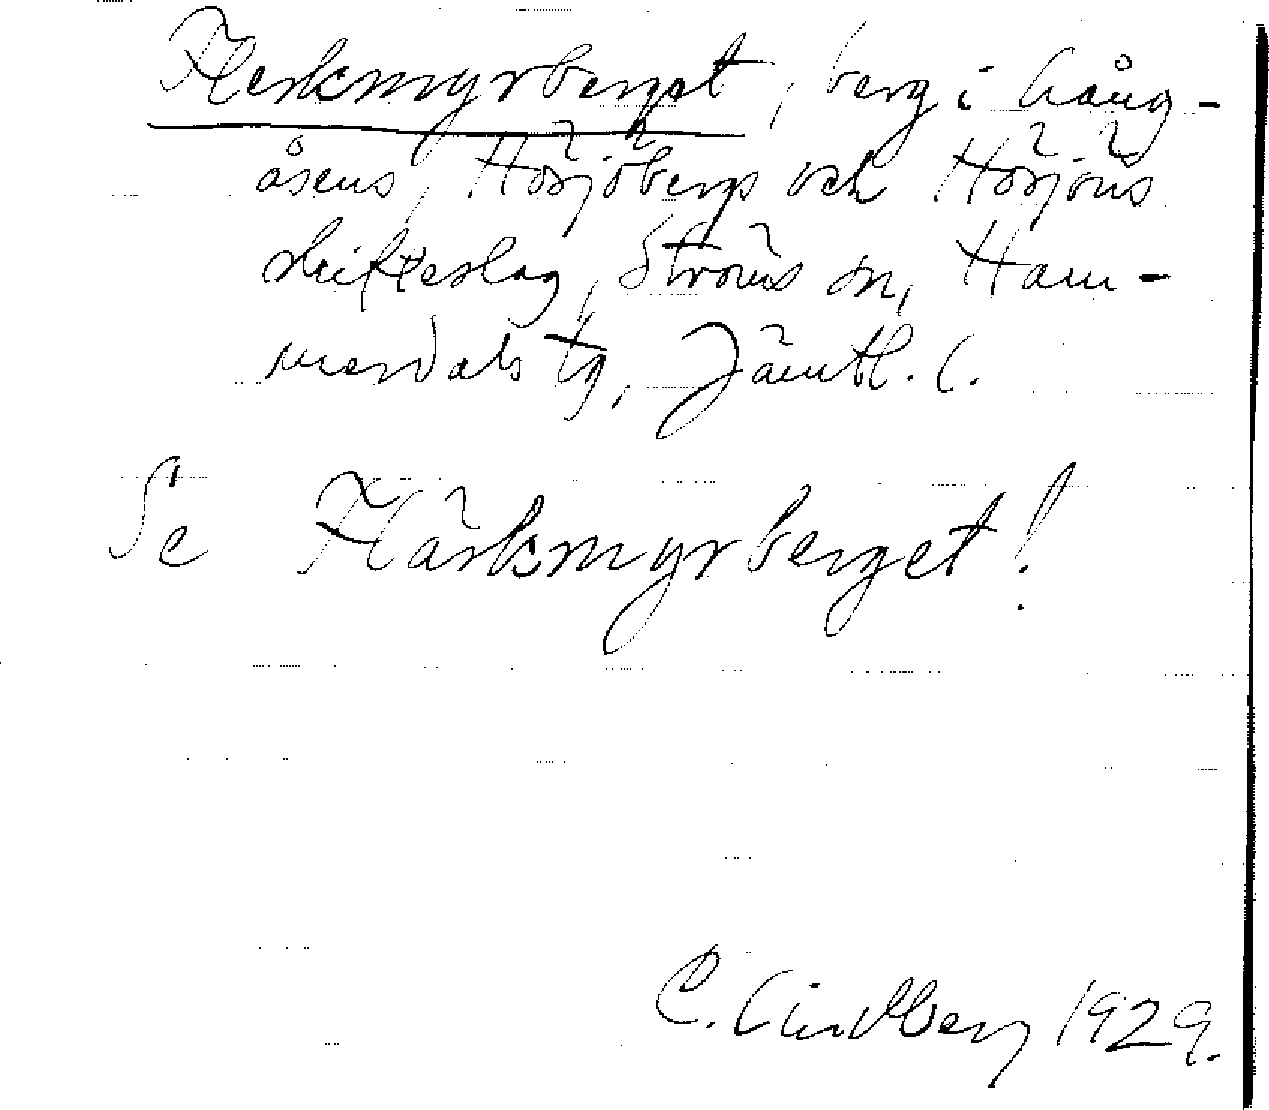 Flerkmyrberget, berg i Lång-
åsens, Hösjöbergs och Hösjöns
skifteslag, Ströms sn, Ham-
merdals tg, Jämtl. l.
Se Flärkmyrberget!
C. Lindberg 1929.